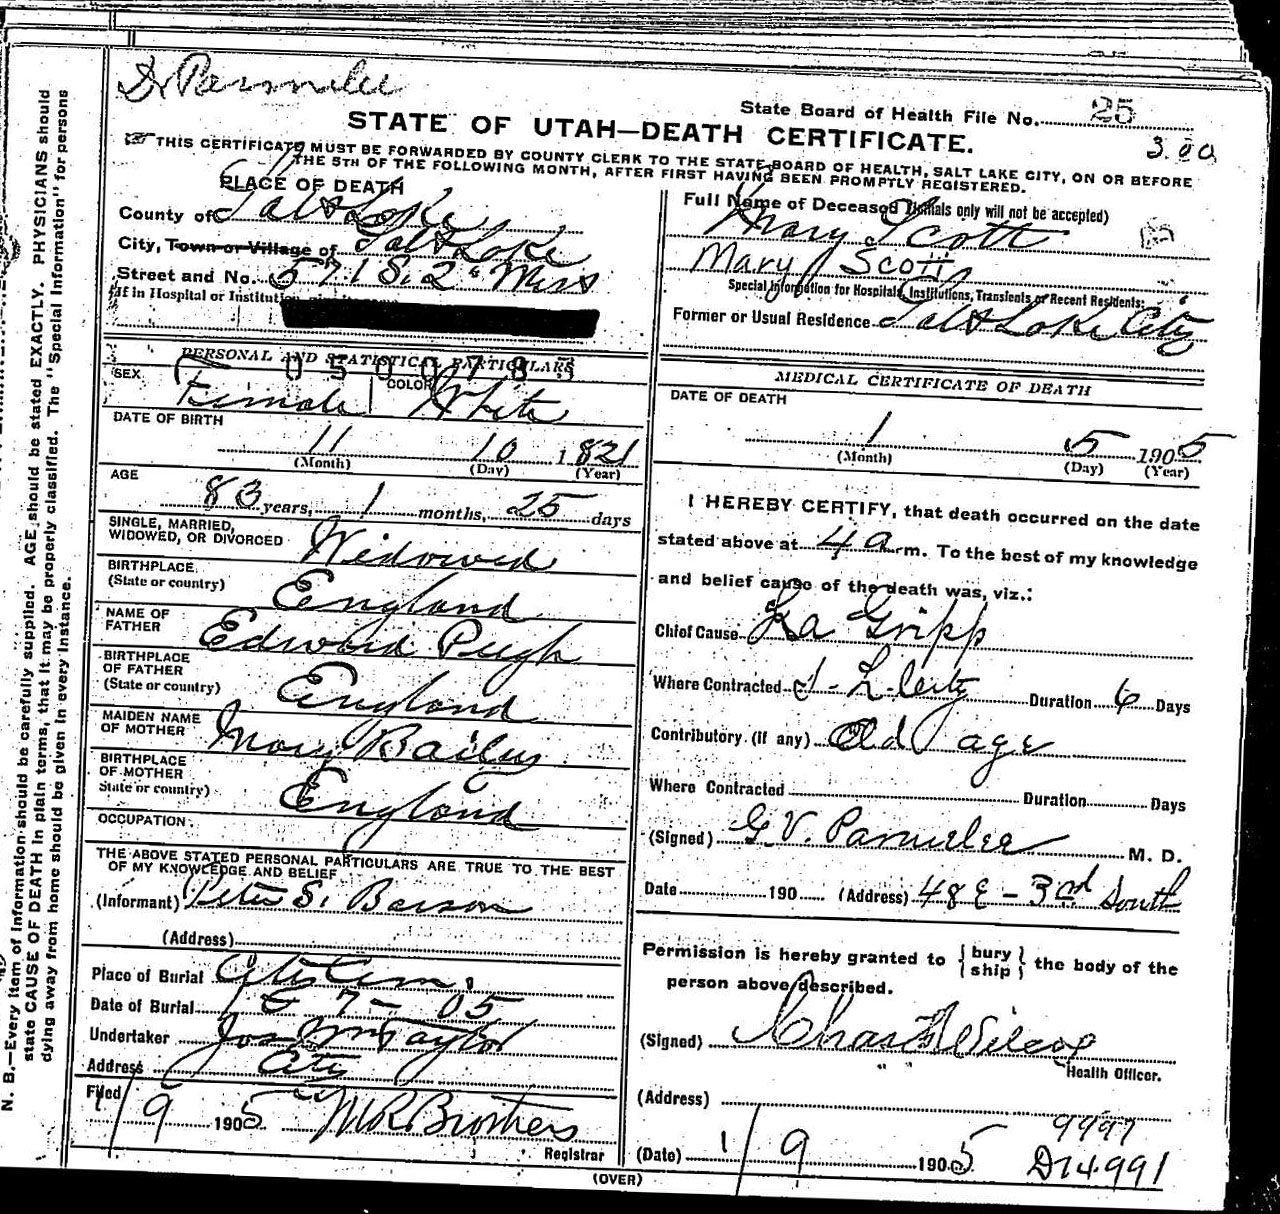 Dr Parmelee
State Board of Health File No. 25
STATE OF UTAH—DEATH CERTIFICATE.
3.00
THIS CERTIFICATE MUST BE FORWARDED BY COUNTY CLERK TO THE STATE BOARD OF HEALTH, SALT LAKE CITY, ON OR BEFORE
THE 5TH OF THE FOLLOWING MONTH, AFTER FIRST HAVING BEEN PROMPTLY REGISTERED.
PLACE OF DEATH
County of Salt Lake
City, Town or Village of Salt Lake
Street and No. 571 S. 2" West
(If in Hospital or Institution
Full Name of Deceased (Initials only will not be accepted)
Mary Scott
Mary Scott
Special Information for Hospitals, Institutions, Transients or Recent Residents:
Former or Usual Residence Salt Lake City
PERSONAL AND STATISTICAL PARTICULARS
0500783
SEX Female COLOR White
DATE OF BIRTH
11 10 1821
(Month) (Day) (Year)
AGE
83 years, 1 months, 25 days
SINGLE, MARRIED,
WIDOWED, OR DIVORCED Widowed
BIRTHPLACE
(State or country) England
NAME OF
FATHER Edward Pugh
BIRTHPLACE
OF FATHER
(State or country) England
MAIDEN NAME
OF MOTHER Mary Bailey
BIRTHPLACE
OF MOTHER
State or country) England
OCCUPATION
THE ABOVE STATED PERSONAL PARTICULARS ARE TRUE TO THE BEST
OF MY KNOWLEDGE AND BELIEF
(Informant) Peter S. Barson
(Address)
Place of Burial City Cem.
Date of Burial 1 - 7 - 05
Undertaker Jos Wm Taylor
Address City
Filed 1/9 1905 M R Brothers
Registrar
MEDICAL CERTIFICATE OF DEATH
DATE OF DEATH
1 5 1905
(Month) (Day) (Year)
I HEREBY CERTIFY, that death occurred on the date
stated above at 4 a m. To the best of my knowledge
and belief cause of the death was, viz.:
Chief Cause La Gripp
Where Contracted S. L. City Duration 6 Days
Contributory (if any) Old age
Where Contracted Duration Days
(Signed) G. V. Parmelee M. D.
Date 190 (Address) 48 E - 3rd South
Permission is hereby granted to { bury ship } the body of the
person above described.
(Signed) Chas F Wilcox
Health Officer.
(Address)
(Date) 1/9 1905
9997
D14991
(OVER)
N. B.—Every item of information should be carefully supplied. AGE should be stated EXACTLY. PHYSICIANS should
state CAUSE OF DEATH in plain terms, that it may be properly classified. The "Special Information" for persons
dying away from home should be given in every instance.